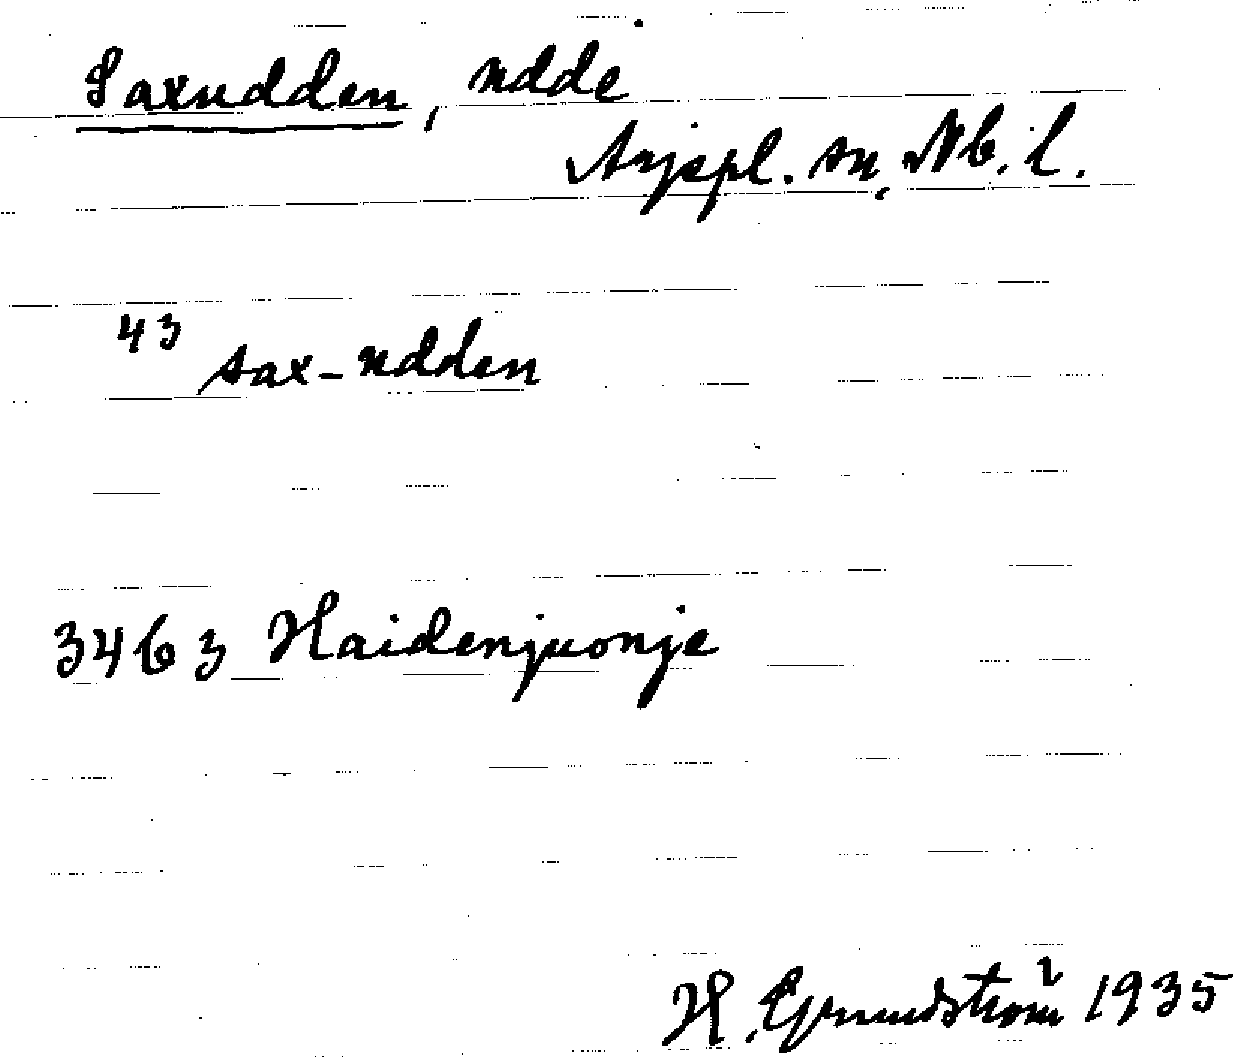 Saxudden, udde
Arjepl. sn, Nb. l.
43 sax-udden
3463 Haidenjuonje
H. Grundström 1935